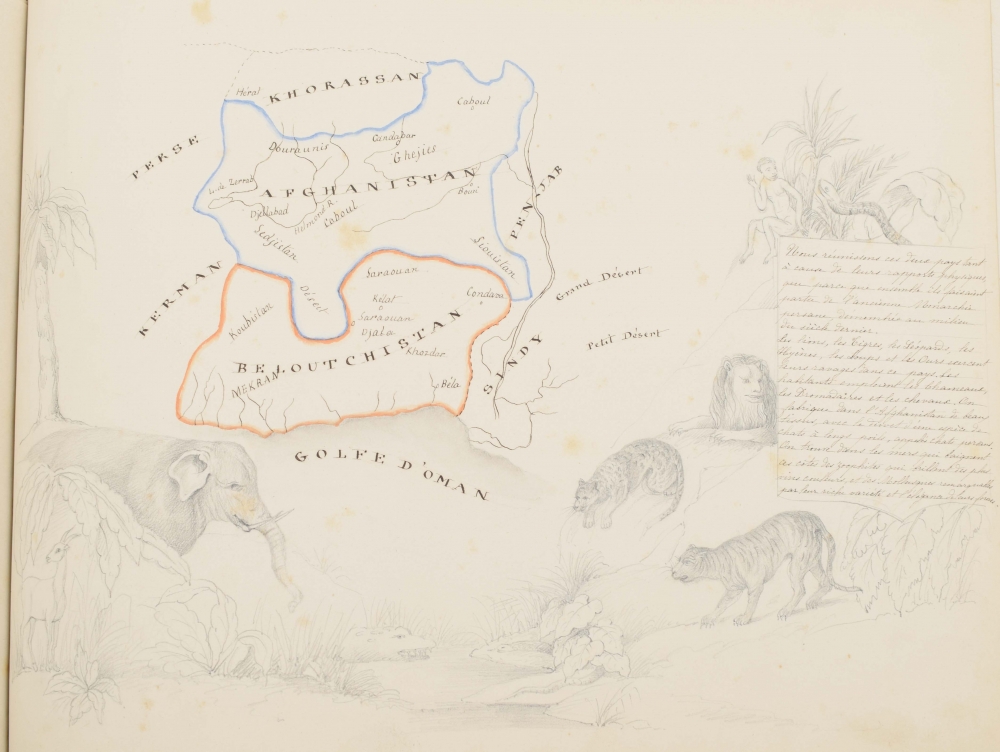 Hérat
KHORASSAN
PERSE
Caboul
Douraunis
Candahar
Ghejies
AFGHANISTAN
Djellabad
Helmend R.
Caboul
Sedjistan
PENDJAB
Siouistan
KERMAN
Saraouan
Désert
Grand Désert
Kouhistan
Kélat
Condava
Saraouan
Petit Désert
BELOUTCHISTAN
Khozdar
MEKRAN
Béla
SINDY
GOLFE D'OMAN
Nous réunissons ces deux pays tant
à cause de leurs rapports physiques
que parce que ensemble ils faisaient
partie de l'ancienne Monarchie
persane, démembrée au milieu
du siècle dernier.
Les lions, les Tigres, les Léopards, les
Hyènes, les Loups et les Ours exercent
leurs ravages dans ce pays. Les
habitants emploient les Chameaux,
les Dromadaires et les chevaux. On
fabrique dans l'Afghanistan de beaux
châles avec le duvet d'une espèce de
chats à longs poils, nommés chats persans.
On trouve dans les mers qui baignent
ces côtes des zoophites qui brillent des plus
vives couleurs, et des Mollusques remarquables
par leur riche variété et l'élégance de leurs formes